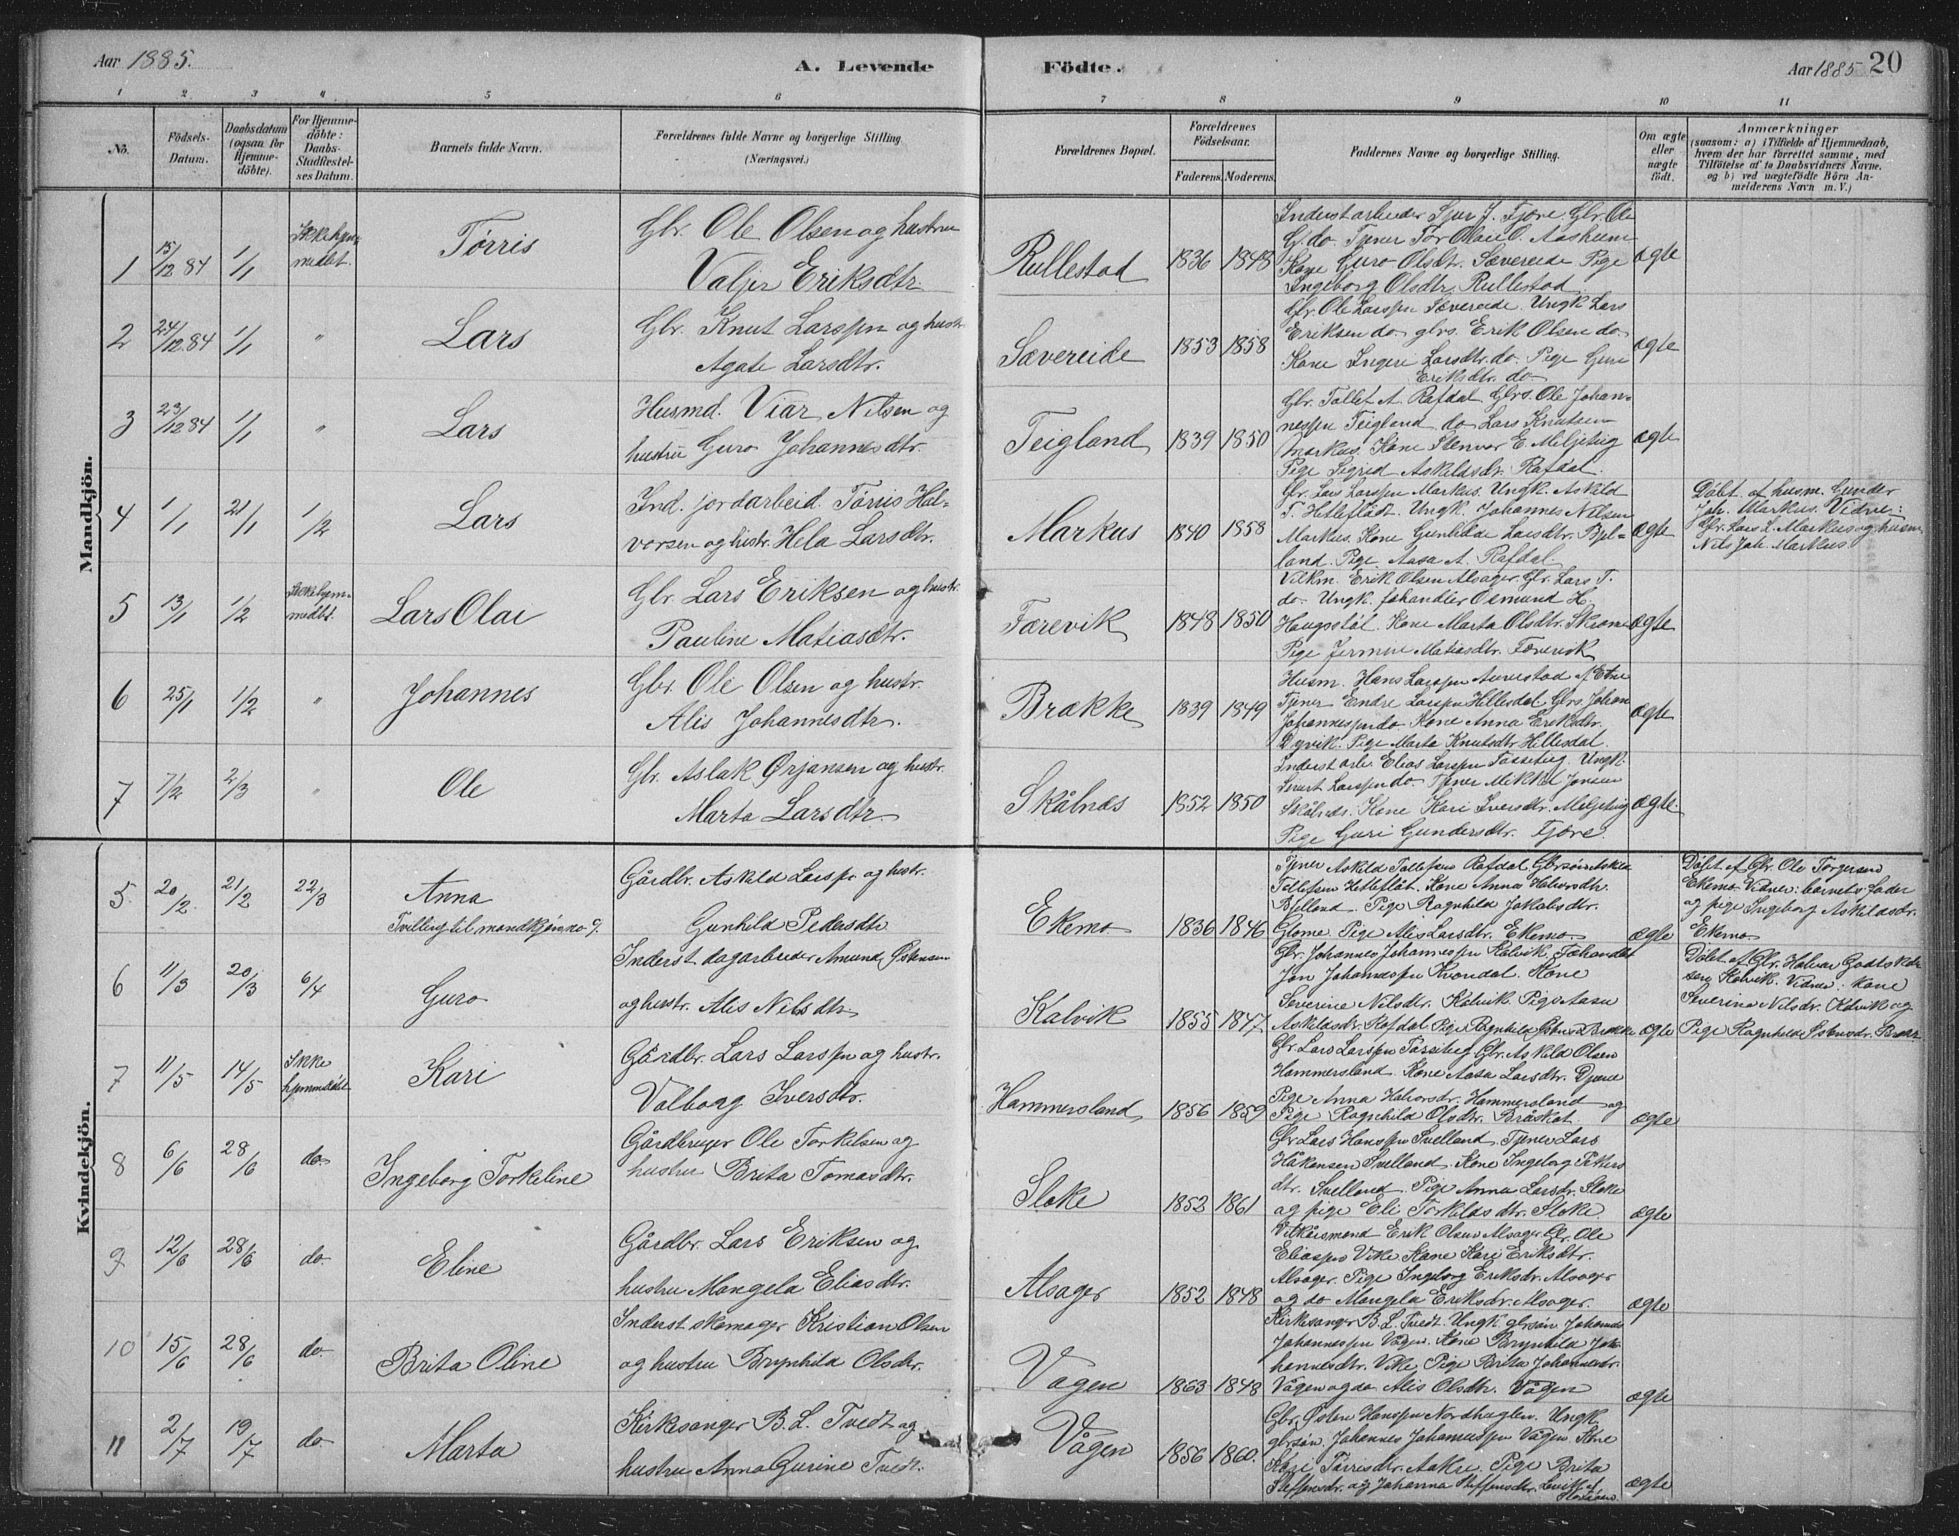 Aar 1885.
A. Levende Födte.
Aar 1885 20
1 2 3 4 5 6 7 8 9 10 11
No.
Födsels-Datum.
Daabsdatum (ogsaa for Hjemmedöbte).
For Hjemmedöbte: Daabs-Stadfæstelses Datum.
Barnets fulde Navn.
Forældrenes fulde Navne og borgerlige Stilling (Næringsvei.)
Forældrenes Bopæl.
Forældrenes Födselsaar.
Faderens. Moderens.
Faddernes Navne og borgerlige Stilling.
Om ægte eller uægte födt.
Anmærkninger
(saasom: a) i Tilfælde af Hjemmedaab, hvem der har forrettet samme, med Tilföielse af to Daabsvidners Navne, og b) ved uægtefödte Börn Anmelderens Navn m. V.)
Mandkjön.
1 15/12 84 1/1 Ikke hjemmedbt. Tørris
Gbr. Ole Olsen og hustru
Valjer Eriksdtr.
Rullestad 1836 1848
Inderst arbeider Sjur J. Fjøre. Gbr. Ole
G. do. Tjener Tor Olai O. Aaskum
Kone Guro Olsdtr. Sævereide Pige
Ingeborg Olsdtr. Rullestad
ægte
2 24/12 84 1/1 " Lars
Gbr. Knut Larssen og hustr.
Agate Larsdtr.
Sævereide 1853 1858
Gbr. Ole Larssen Sævereide. Ungk. Lars
Eriksen do gbrs. Erik Olsen do
Kone Ingeri Larsdtr. do. Pige Guri
Eriksdtr. do
ægte
3 23/12 84 1/1 " Lars
Husmd. Viar Nilsen og
hustru Guro Johannesdtr.
Teigland 1839 1850
Gbr. Tollet A. Rafdal Gbrs. Ole Johan-
nessen Teigland do Lars Knutsen
Markus. Kone Stenvor E. Miljeteig
Pige Sigrid Askildsdtr. Rafdal.
ægte
4 1/1 21/1 1/2 Lars
Ind. jordarbeid. Tørris Hal-
vorsen og hustr. Hela Larsdtr.
Markus 1840 1858
Gbr. Lars Larssen Markus. Ungk. Askild
T. Hetleflåt. Ungk. Johannes Nilsen
Markus. Kone Gunhilde Larsdtr. Bjel-
land. Pige Aasa A. Rafdal
ægte
Døbt af husm. Gunder
Joh. Markus. Vidne:
Gbr. Lars L. Markus og husm.
Nils Joh. Markus.
5 13/1 1/2 Ikke hjemmedbt. Lars Olai
Gbr. Lars Eriksen og hustr.
Pauline Matiasdtr.
Færevik 1848 1850
Vilkm. Erik Olsen Alsager. Gbr. Lars T.
do Ungk. fæhandler Osmund H.
Haugstøl. Kone Marta Olsdtr. Skromo
Pige Jermine Matiasdtr. Færevik
ægte
6 25/1 1/2 " Johannes
Gbr. Ole Olsen og hustr.
Alis Johannesdtr.
Brække 1839 1849
Husm. Hans Larssen Aurestad af Etne
Tjener Endre Larssen Hillesdal Gbrs. Johan
Johannessen do. Kone Anna Eriksdtr.
Dyvik. Pige Marta Knutsdtr. Hillesdal.
ægte
7 7/2 2/3 " Ole
Gbr. Aslak Ørjansen og hustr.
Marta Larsdtr.
Skålnæs 1852 1850
Inderst arb. Elias Larssen Tassiteig. Ungk.
Knut Larssen do. Tjener Mikkel Jonsen
Skålnæs. Kone Kari Iversdtr. Miljeteig
Pige Guri Gundersdtr. Fjøre.
ægte
Kvindekjön.
5 20/2 21/2 22/3 Anna
Tvilling til mandkjøn no 9.
Gårdbr. Askild Larssen og hustr.
Gunhild Pedersdtr.
Ekemo 1836 1846
Tjener Askild Tollefsen Rafdal Gbrsøn Askild
Tollefsen Hetleflåt. Kone Anna Halvorsdtr.
Bjelland. Pige Ragnhild Jakobsdtr.
Glome. Pige Alis Larsdtr. Ekemo.
ægte
Døbt af Gbr. Ole Torgersen
Ekemo. Vidner: barnets fader
og pige Ingeborg Askildsdtr.
Ekemo
6 11/3 20/3 6/4 Guro
Inderst dagarbeider Amund Østensen
og hustr. Alis Nilsdtr.
Kalvik 1855 1847
Gbr. Johannes Johannessen Kalvik. Fæhandler
Jon Johannessen Kvondal. Kone
Severine Nilsdtr. Kalvik Pige Aasa
Askildsdtr. Rafdal Pige Ragnhild Østensd. Brække
ægte
Døbt af Gbr. Halvar Godtskalk-
sen Kalvik. Vidner: kone
Severina Nilsdtr. Kalvik og
Pige Ragnhilda Østensdr. Brække
7 11/5 14/5 Ikke hjemmedøbt Kari
Gårdbr. Lars Larssen og hustr.
Valborg Iversdtr.
Hammersland 1856 1859
Gbr. Lars Larssen Tassiteig Gbr. Askild Olsen
Hammersland. Kone Aasa Larsdtr. Djøne
Pige Anna Halvorsdtr. Hammersland og
Pige Ragnhild Olsdtr. Bråskat
ægte
8 6/6 28/6 do Ingeborg Torkeline
Gårdbruger Ole Torkelsen og
hustru Brita Tomasdtr.
Stoke 1852 1861
Gbr. Lars Hanssen Svelland. Tjener Lars
Håkonsen Svelland. Kone Ingeborg Peters
dtr. Svelland. Pige Anna Larsdr. Stoke
og pige Eli Torkildsdtr. Stoke
ægte
9 12/6 28/6 do Eline
Gårdbr. Lars Eriksen og
hustru Mangela Eliasdtr.
Alsager 1852 1848
Vilkårsmand Erik Olsen Alsager. Gbr. Ole
Eliassen Vike Kone Kari Eriksdtr.
Alsager. Pige Ingeborg Eriksdr. Alsager
og do Mangela Eriksdtr. Alsager.
ægte
10 15/6 28/6 do Brita Oline
Inderst skomager Kristian Olsen
og hustru Brynhilda Olsdtr.
Vågen 1863 1848
Kirkesanger B. L. Tvedt. Ungk. gbrsøn Johannes
Johannessen Vågen. Kone Brynhild Jo-
hannesdtr. Vike Pige Brita Johannesdtr.
Vågen og do Alis Olsdtr. Vågen
ægte
11 2/7 19/7 do Marta
Kirkesanger B. L. Tvedt og
hustru Anna Gurine Tvedt.
Vågen 1856 1860
Gbr. Østen Hanssen Nordhuglen. Ungk.
gbrsøn Johannes Johannessen Vågen. Kone
Kari Tørrisdtr. Aakre. Pige Brita
Steffensdtr. og Johanna Steffensdtr.
ægte